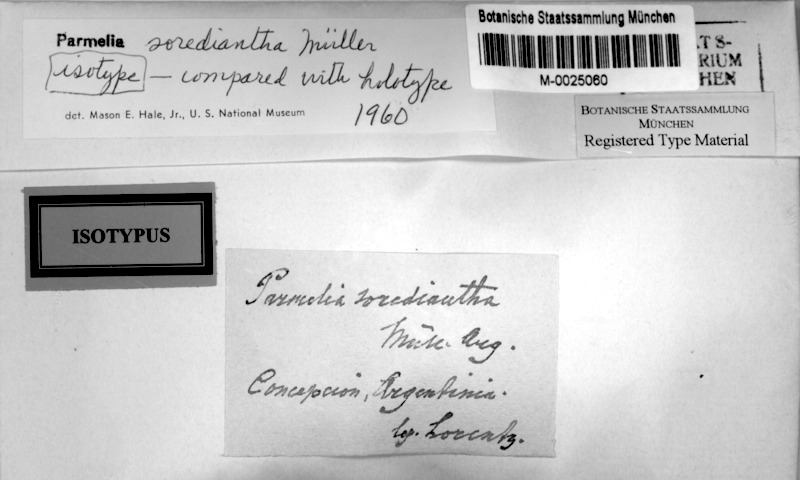 Parmelia sorediantha Müller
isotype — compared with holotype
1960
det. Mason E. Hale, Jr., U. S. National Museum
Botanische Staatssammlung München
M-0025060
TS-
RIUM
HEN
BOTANISCHE STAATSSAMMLUNG
MÜNCHEN
Registered Type Material
ISOTYPUS
Parmelia sorediantha
Müll. Arg.
Concepcion, Argentinia.
lg. Lorentz.